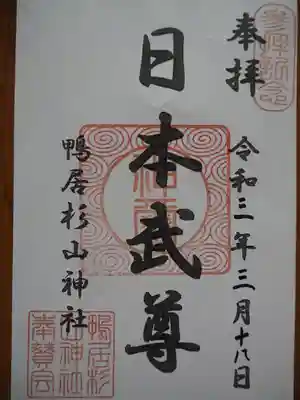 奉拝
令和三年三月十八日
日本武尊
鴨居杉山神社
参拝記念
鴨居杉
山神社
奉賛会